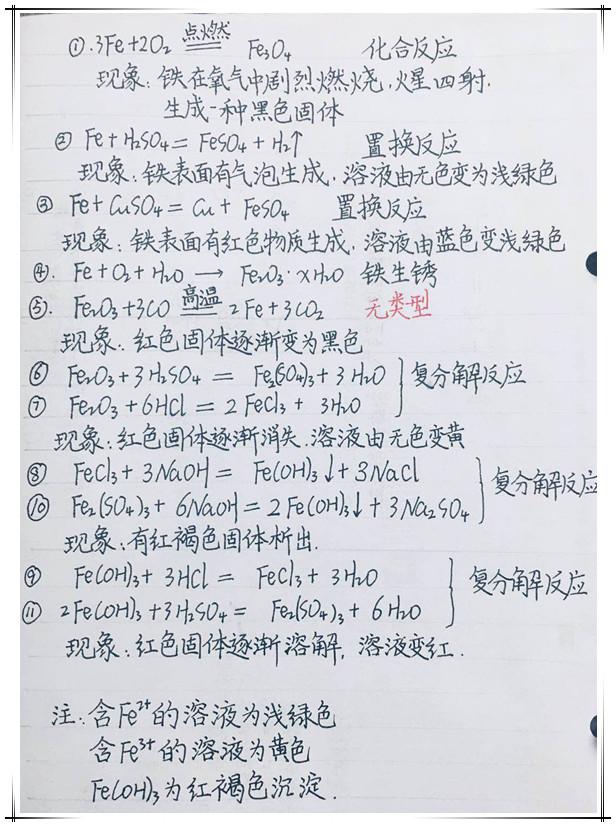 ①.3Fe+2O₂ 点燃 Fe₃O₄ 化合反应
现象：铁在氧气中剧烈燃烧，火星四射.
生成一种黑色固体
② Fe+H₂SO₄= FeSO₄+H₂↑ 置换反应
现象：铁表面有气泡生成，溶液由无色变为浅绿色
③ Fe+CuSO₄= Cu+ FeSO₄ 置换反应
现象：铁表面有红色物质生成，溶液由蓝色变浅绿色
④. Fe+O₂+H₂O → Fe₂O₃·xH₂O 铁生锈
⑤. Fe₂O₃+3CO 高温 2Fe+3CO₂ 无类型
现象：红色固体逐渐变为黑色
⑥ Fe₂O₃+3H₂SO₄ = Fe₂(SO₄)₃+3H₂O 复分解反应
⑦ Fe₂O₃+6HCl = 2FeCl₃+ 3H₂O
现象：红色固体逐渐消失.溶液由无色变黄
⑧ FeCl₃+3NaOH= Fe(OH)₃↓+3NaCl 复分解反应
⑩ Fe₂(SO₄)₃+ 6NaOH=2Fe(OH)₃↓+3Na₂SO₄
现象：有红褐色固体析出.
⑨ Fe(OH)₃+ 3HCl= FeCl₃+3H₂O 复分解反应
⑪ 2Fe(OH)₃+3H₂SO₄= Fe₂(SO₄)₃+6H₂O
现象：红色固体逐渐溶解，溶液变红.
注：含Fe²⁺的溶液为浅绿色
含Fe³⁺的溶液为黄色
Fe(OH)₃为红褐色沉淀.